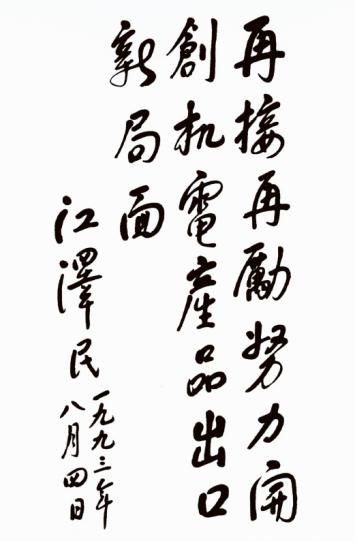 再接再勵努力開
創机電産品出口
新局面
江澤民
一九九三年
八月四日